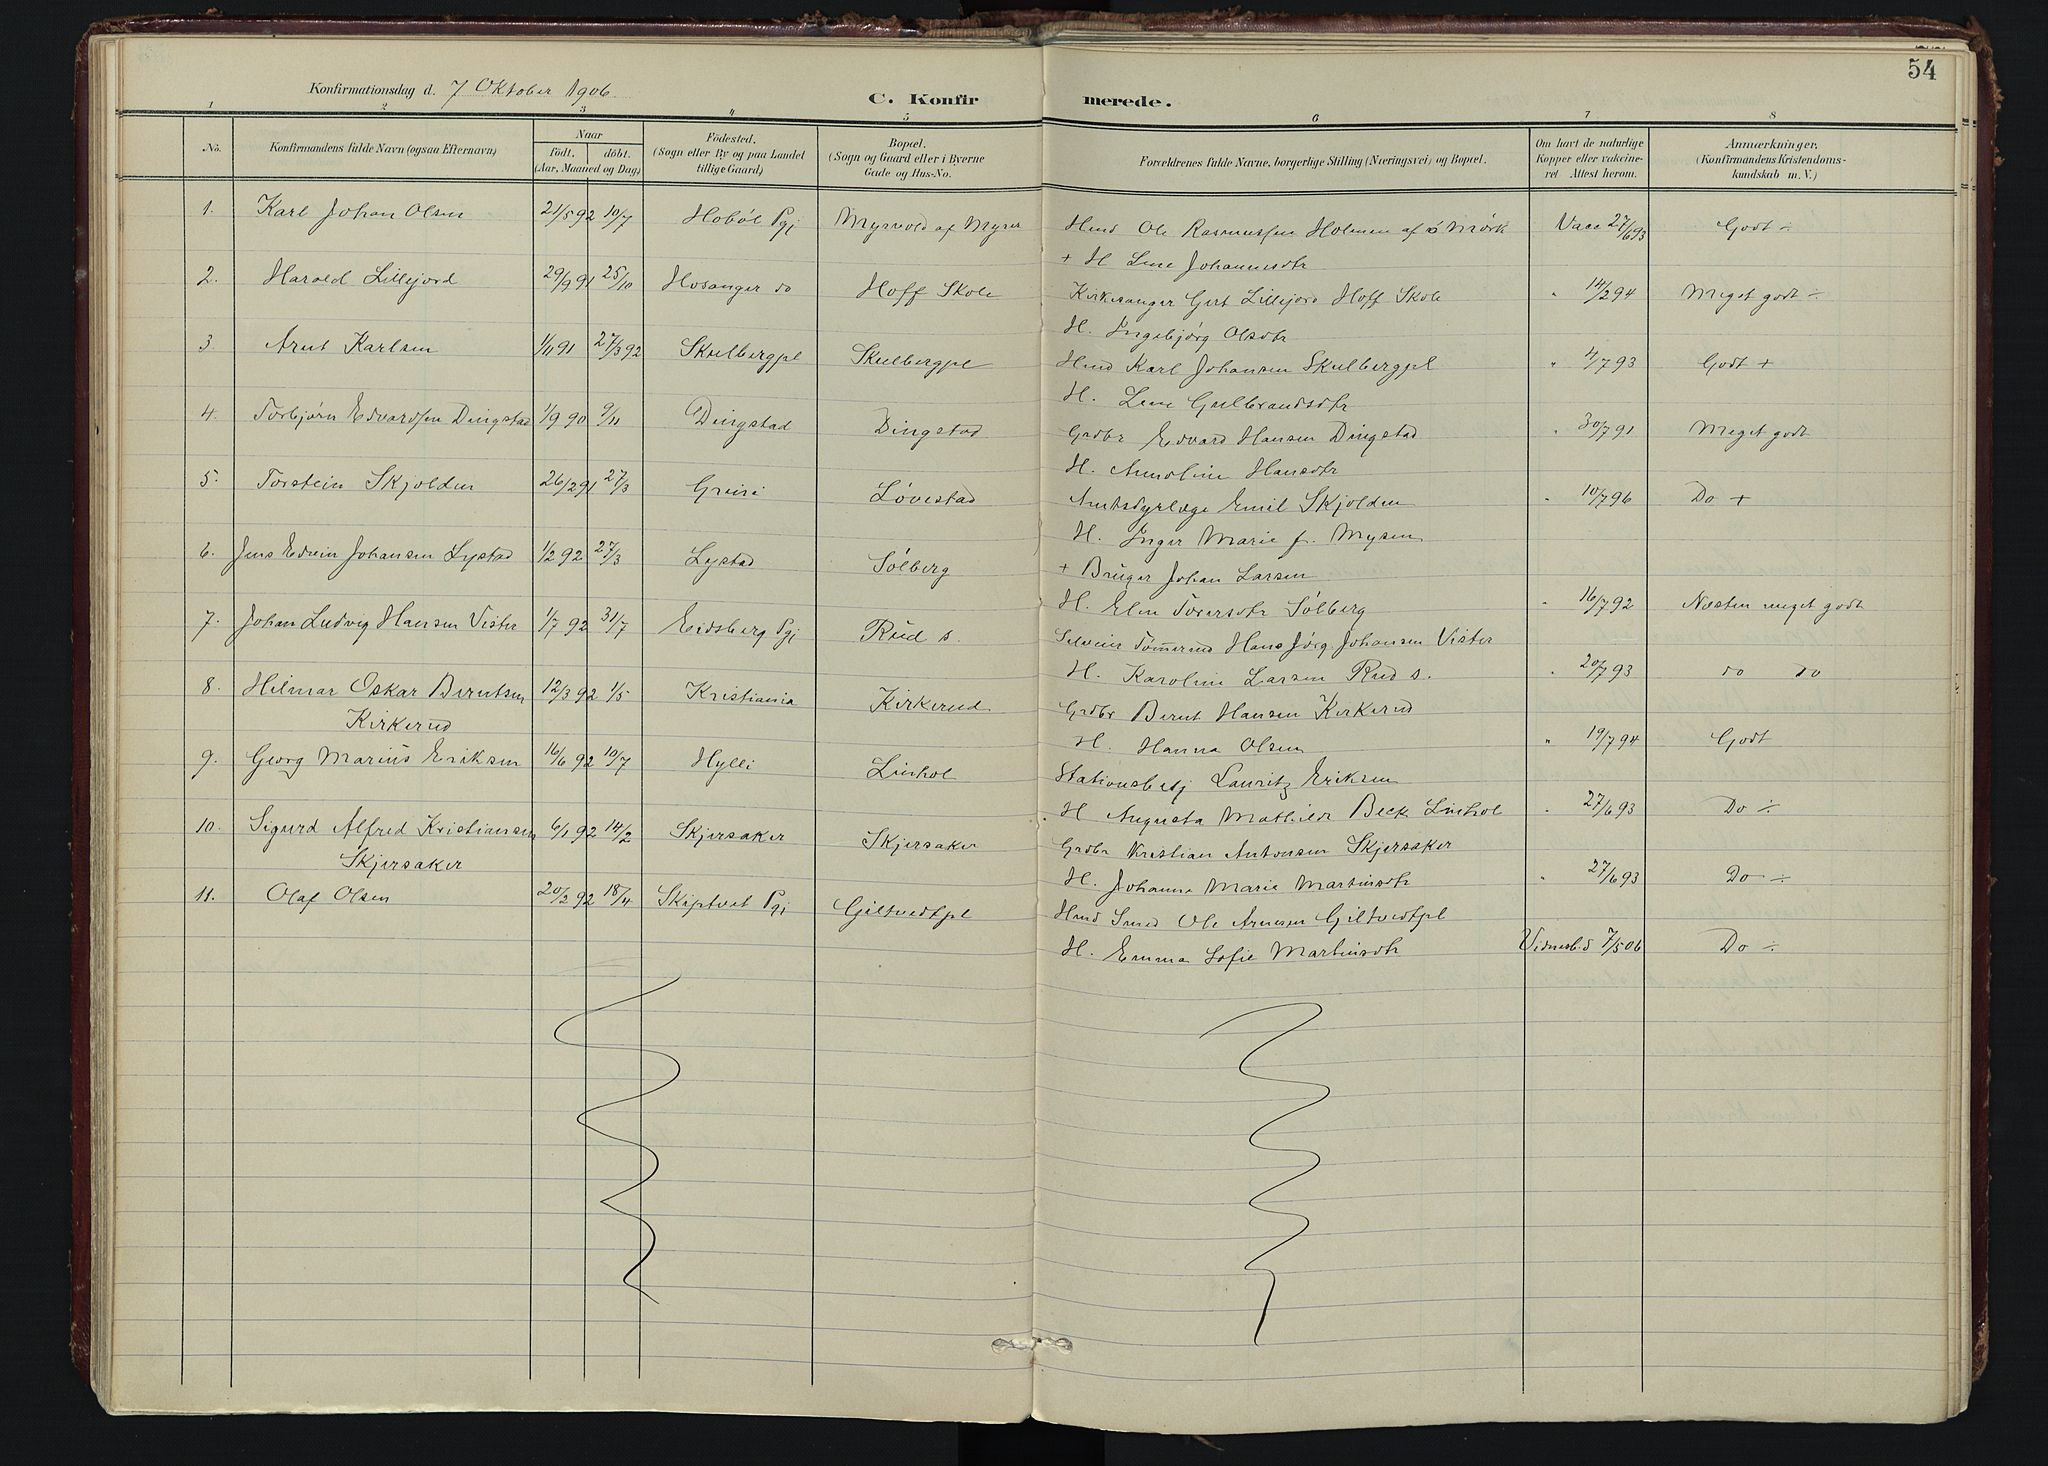 54
Konfirmationsdag d. 7 Oktober 1906.
C. Konfirmerede.
1 2 3 4 5 6 7 8
No. Konfirmandens fulde Navn (ogsaa Efternavn) Naar födt. döbt. (Aar, Maaned og Dag) Födested. (Sogn eller By og paa Landet tillige Gaard) Bopæl. (Sogn og Gaard eller i Byerne Gade og Hus-No. Forældrenes fulde Navne, borgerlige Stilling (Næringsvei) og Bopæl. Om havt de naturlige Kopper eller vakcineret Attest herom. Anmærkninger. (Konfirmandens Kristendomskundskab m. V.)
1. Karl Johan Olsen 21/5 92 10/7 Hobøl Pgj Myrvold af Myrer Hmd Ole Rasmussen Holmen af Mørk Vacc 27/6 93 Godt ÷
+ H Lene Johannesdtr
2. Harald Lillejord 29/9 91 25/10 Hosanger do Hoff Skole Kirkesanger Gert Lillejord Hoff Skole " 14/2 94 Meget godt ÷
H. Ingebjørg Olsdtr
3 Arnt Karlsen 1/11 91 27/3 92 Skulbergpl Skulbergpl Hmd Karl Johansen Skulbergpl " 4/7 93 Godt +
H. Lene Gulbrandsdtr
4. Torbjørn Edvardsen Dingstad 1/9 90 9/11 Dingstad Dingstad Grdbr Edvard Hansen Dingstad " 30/7 91 Meget godt
H. Annoline Hansdtr
5. Torstein Skjolden 26/2 91 27/3 Løvestad Amtsdyrlæge Emil Skjolden " 10/7 96 Do +
H. Inger Marie f. Mysen
6. Jens Edvin Johansen Lystad 1/2 92 27/3 Lystad Sølberg + Bruger Johan Larsen
H. Elen Torersdtr Sølberg " 16/7 92 Næsten meget godt
7. Johan Ludvig Hansen Vister 1/7 92 31/7 Eidsberg Pgj Rud s. Selveier Tømmerud Hans Jørg. Johansen Vister
H. Karoline Larsen Rud s. " 20/7 93 do do
8. Hilmar Oskar Berntsen Kirkerud 12/3 92 1/5 Kristiania Kirkerud Grdbr Bernt Hansen Kirkerud
H. Hanna Olsen " 19/7 94 Godt
9. Georg Marius Eriksen 16/6 92 10/7 Hylli Linhol Stationsbetj Lauritz Eriksen
H Augusta Mathilde Beck Linhol " 27/6 93 Do ÷
10. Sigurd Alfred Kristiansen Skjersaker 6/1 92 14/2 Skjersaker Skjersaker Grdbr Kristian Antonsen Skjersaker
H. Johanne Marie Martinsdtr " 27/6 93 Do ÷
11. Olaf Olsen 20/2 92 18/4 Skiptvet Pgj Giltvedtpl Hmd Smed Ole Arnesen Giltvedtpl
H. Emma Sofie Martinsdtr Vidnesb.d 7/5 06 Do ÷